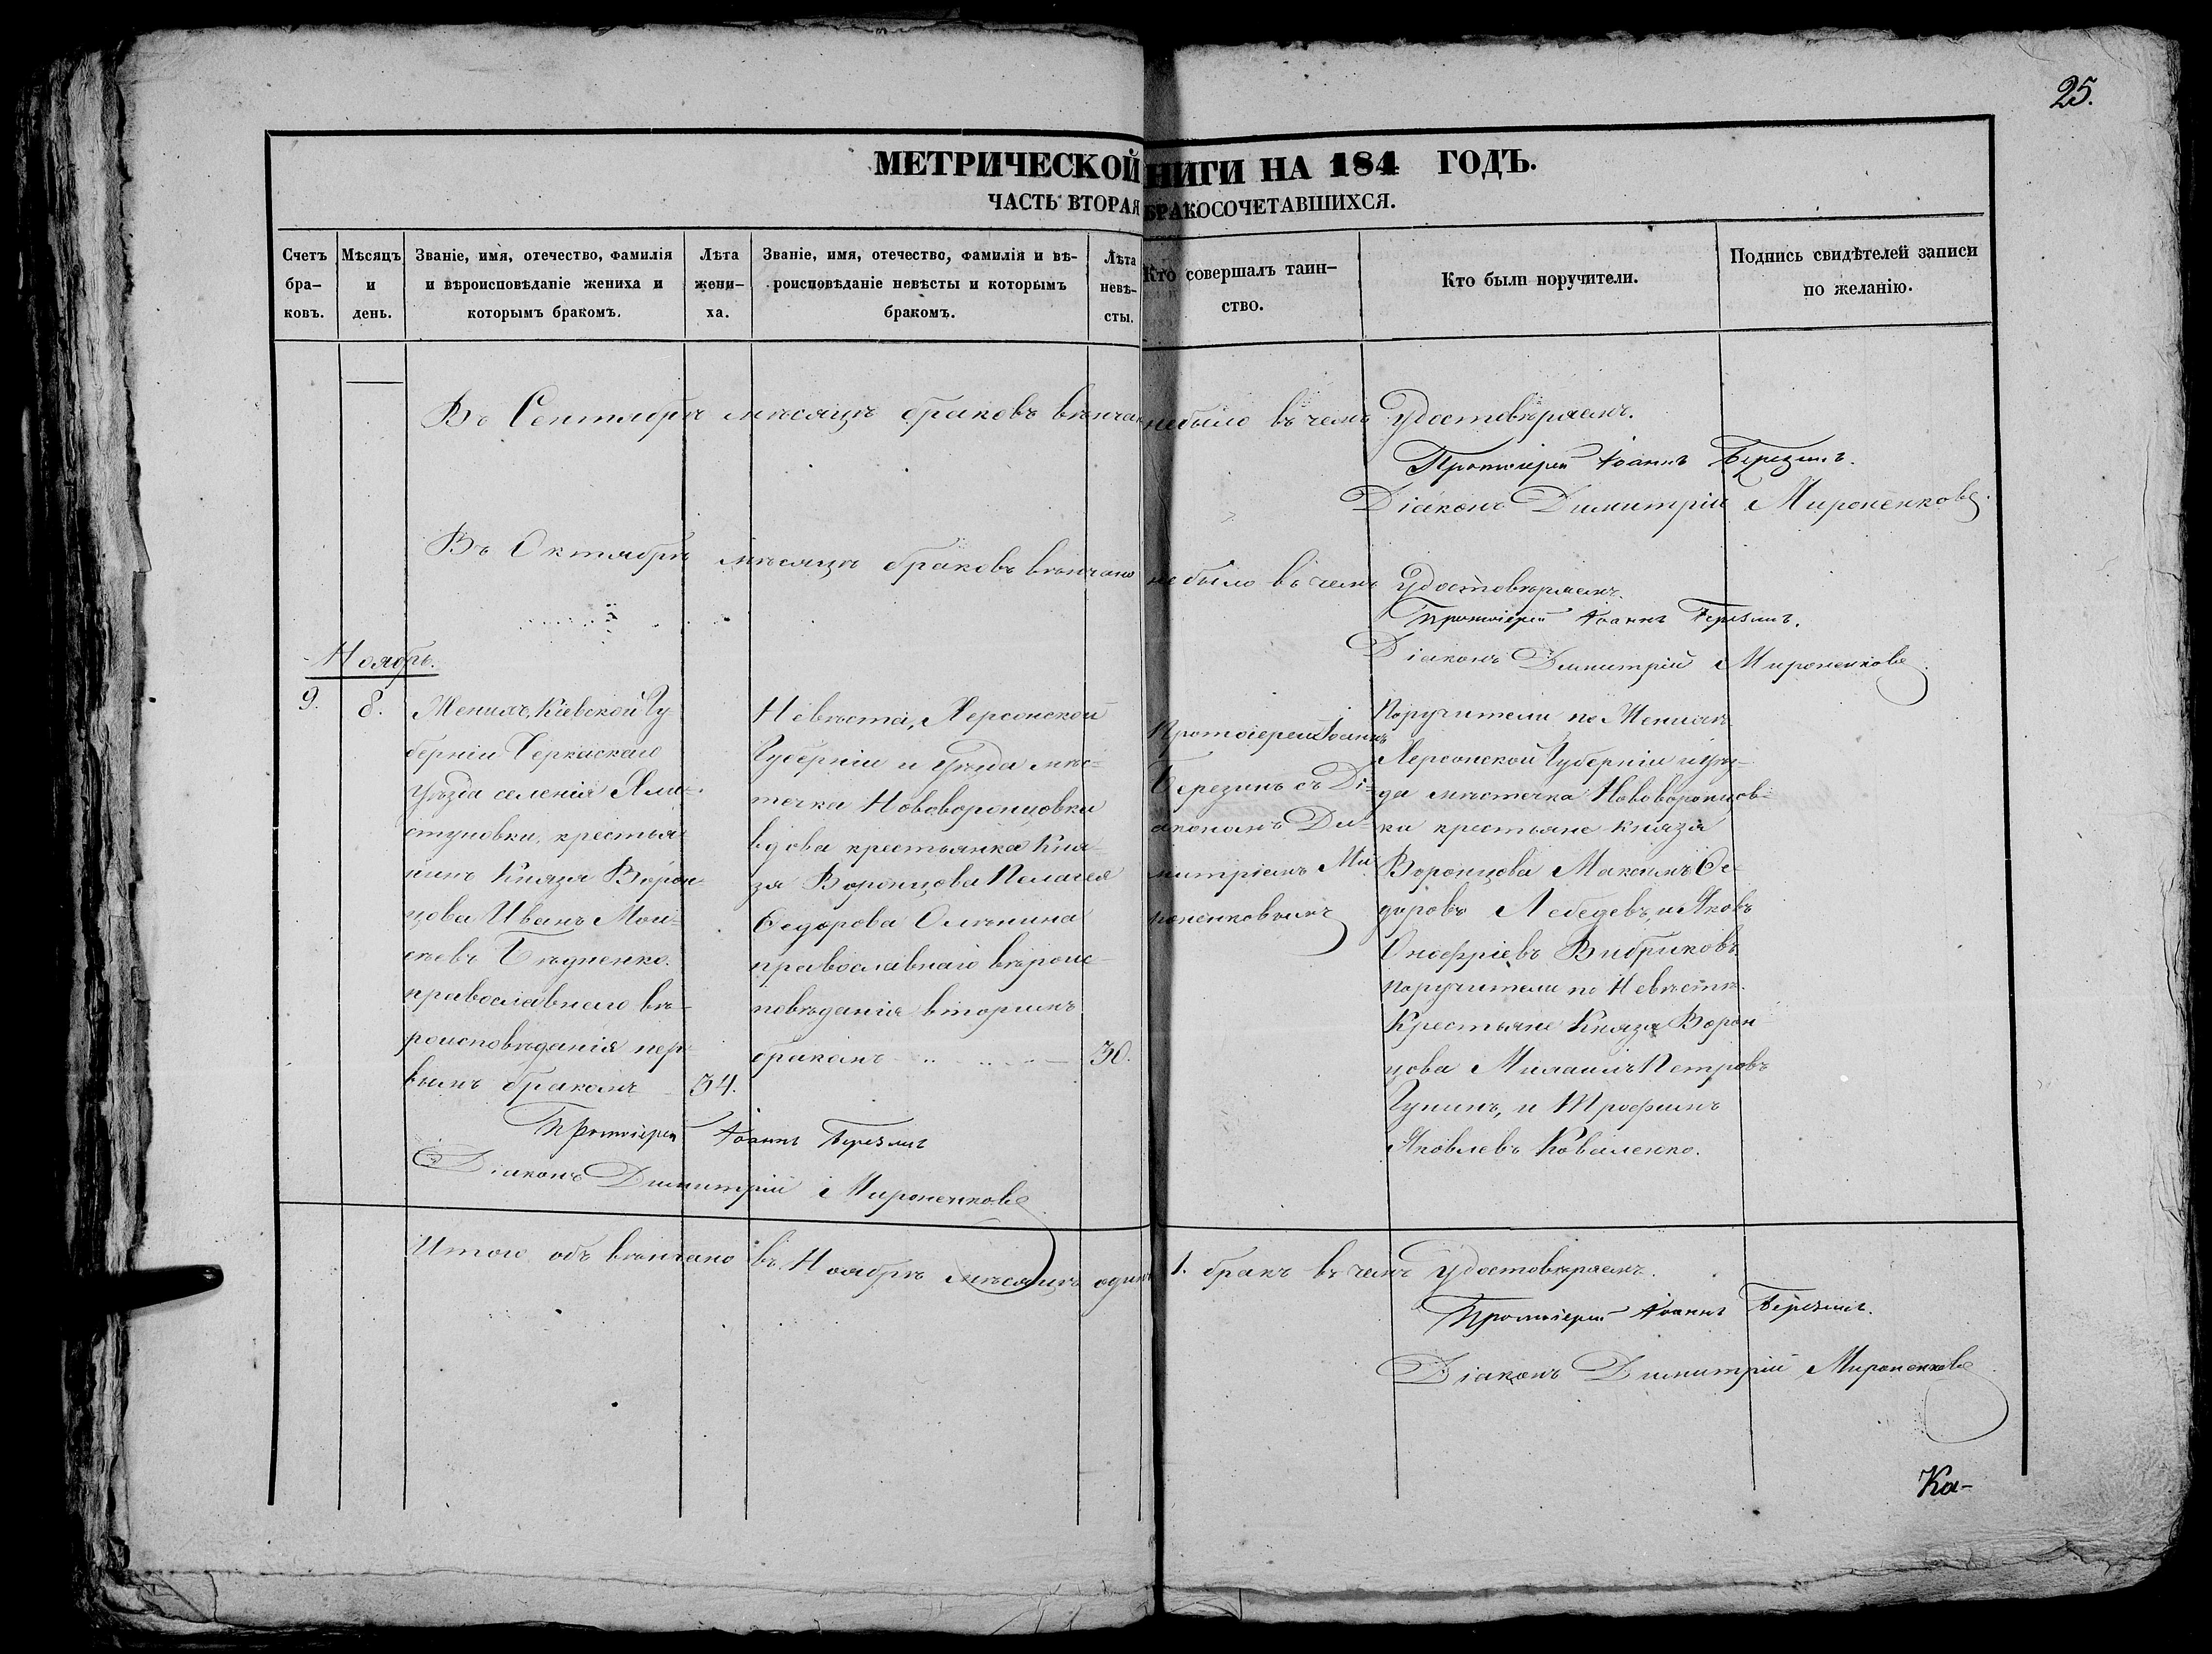 25.
МЕТРИЧЕСКОЙ НИГИ НА 184 ГОДЪ.
ЧАСТЬ ВТОРАЯ БРАКОСОЧЕТАВШИХСЯ.
Счетъ бра-
ковъ.
Мѣсяцъ
и
день.
Званіе, имя, отечество, фамилія
и вѣроисповѣданіе жениха и
которымъ бракомъ.
Лѣта
жени-
ха.
Званіе, имя, отечество, фамилія и вѣ-
роисповѣданіе невѣсты и которымъ
бракомъ.
Лѣта
невѣ-
сты.
Кто совершалъ таин-
ство.
Кто были поручители.
Подпись свидѣтелей записи
по желанію.
Въ Сентябрѣ мѣсяцѣ браковъ вѣнчано небыло въ чемъ Удостовѣряемъ.
Протоіерей Іоаннъ Березинъ.
Діаконъ Димитрій Мироненковъ.
Въ Октябрѣ мѣсяцѣ браковъ вѣнчано небыло въ чемъ Удостовѣряемъ.
Протоіерей Іоаннъ Березинъ.
Діаконъ Димитрій Мироненковъ.
Ноябрь.
9.
8.
Женихъ, Кіевской Гу
берніи Черкаскаго
Уѣзда селенія
крестья-
нинъ Князя Ворон-
цова Иванъ Мои-
сѣевъ
православнаго вѣ-
роисповѣданія пер-
вымъ бракомъ
34.
Невѣста, Херсонской
Губерніи и Уѣзда мѣс-
течка Нововоронцовки
вдова крестьянка Кня-
зя Воронцова Пелагея
Ѳедорова
православнаго вѣроис-
повѣданія вторымъ
бракомъ
30.
Протоіерей Іоаннъ
Березинъ съ Ді-
акономъ Ди-
митріемъ Ми-
роненковымъ
Поручители по Женихѣ
Херсонской Губерніи и Уѣз-
да мѣстечка Нововоронцов-
ки крестьяне Князя
Воронцова Максимъ Ѳе-
доровъ Лебедевъ, и Яковъ
Онофріевъ Вибриковъ,
поручители по Невѣстѣ.
Крестьяне Князя Ворон-
цова Михаилъ Петровъ
и Трофимъ
Яковлевъ Коваленко.
Протоіерей Іоаннъ Березинъ
Діаконъ Димитрій Мироненковъ
Итого объ вѣнчано въ Ноябрѣ мѣсяцѣ одинъ 1. бракъ въ чемъ удостовѣряемъ.
Протоіерей Іоаннъ Березинъ.
Діаконъ Димитрій Мироненковъ
Ка-